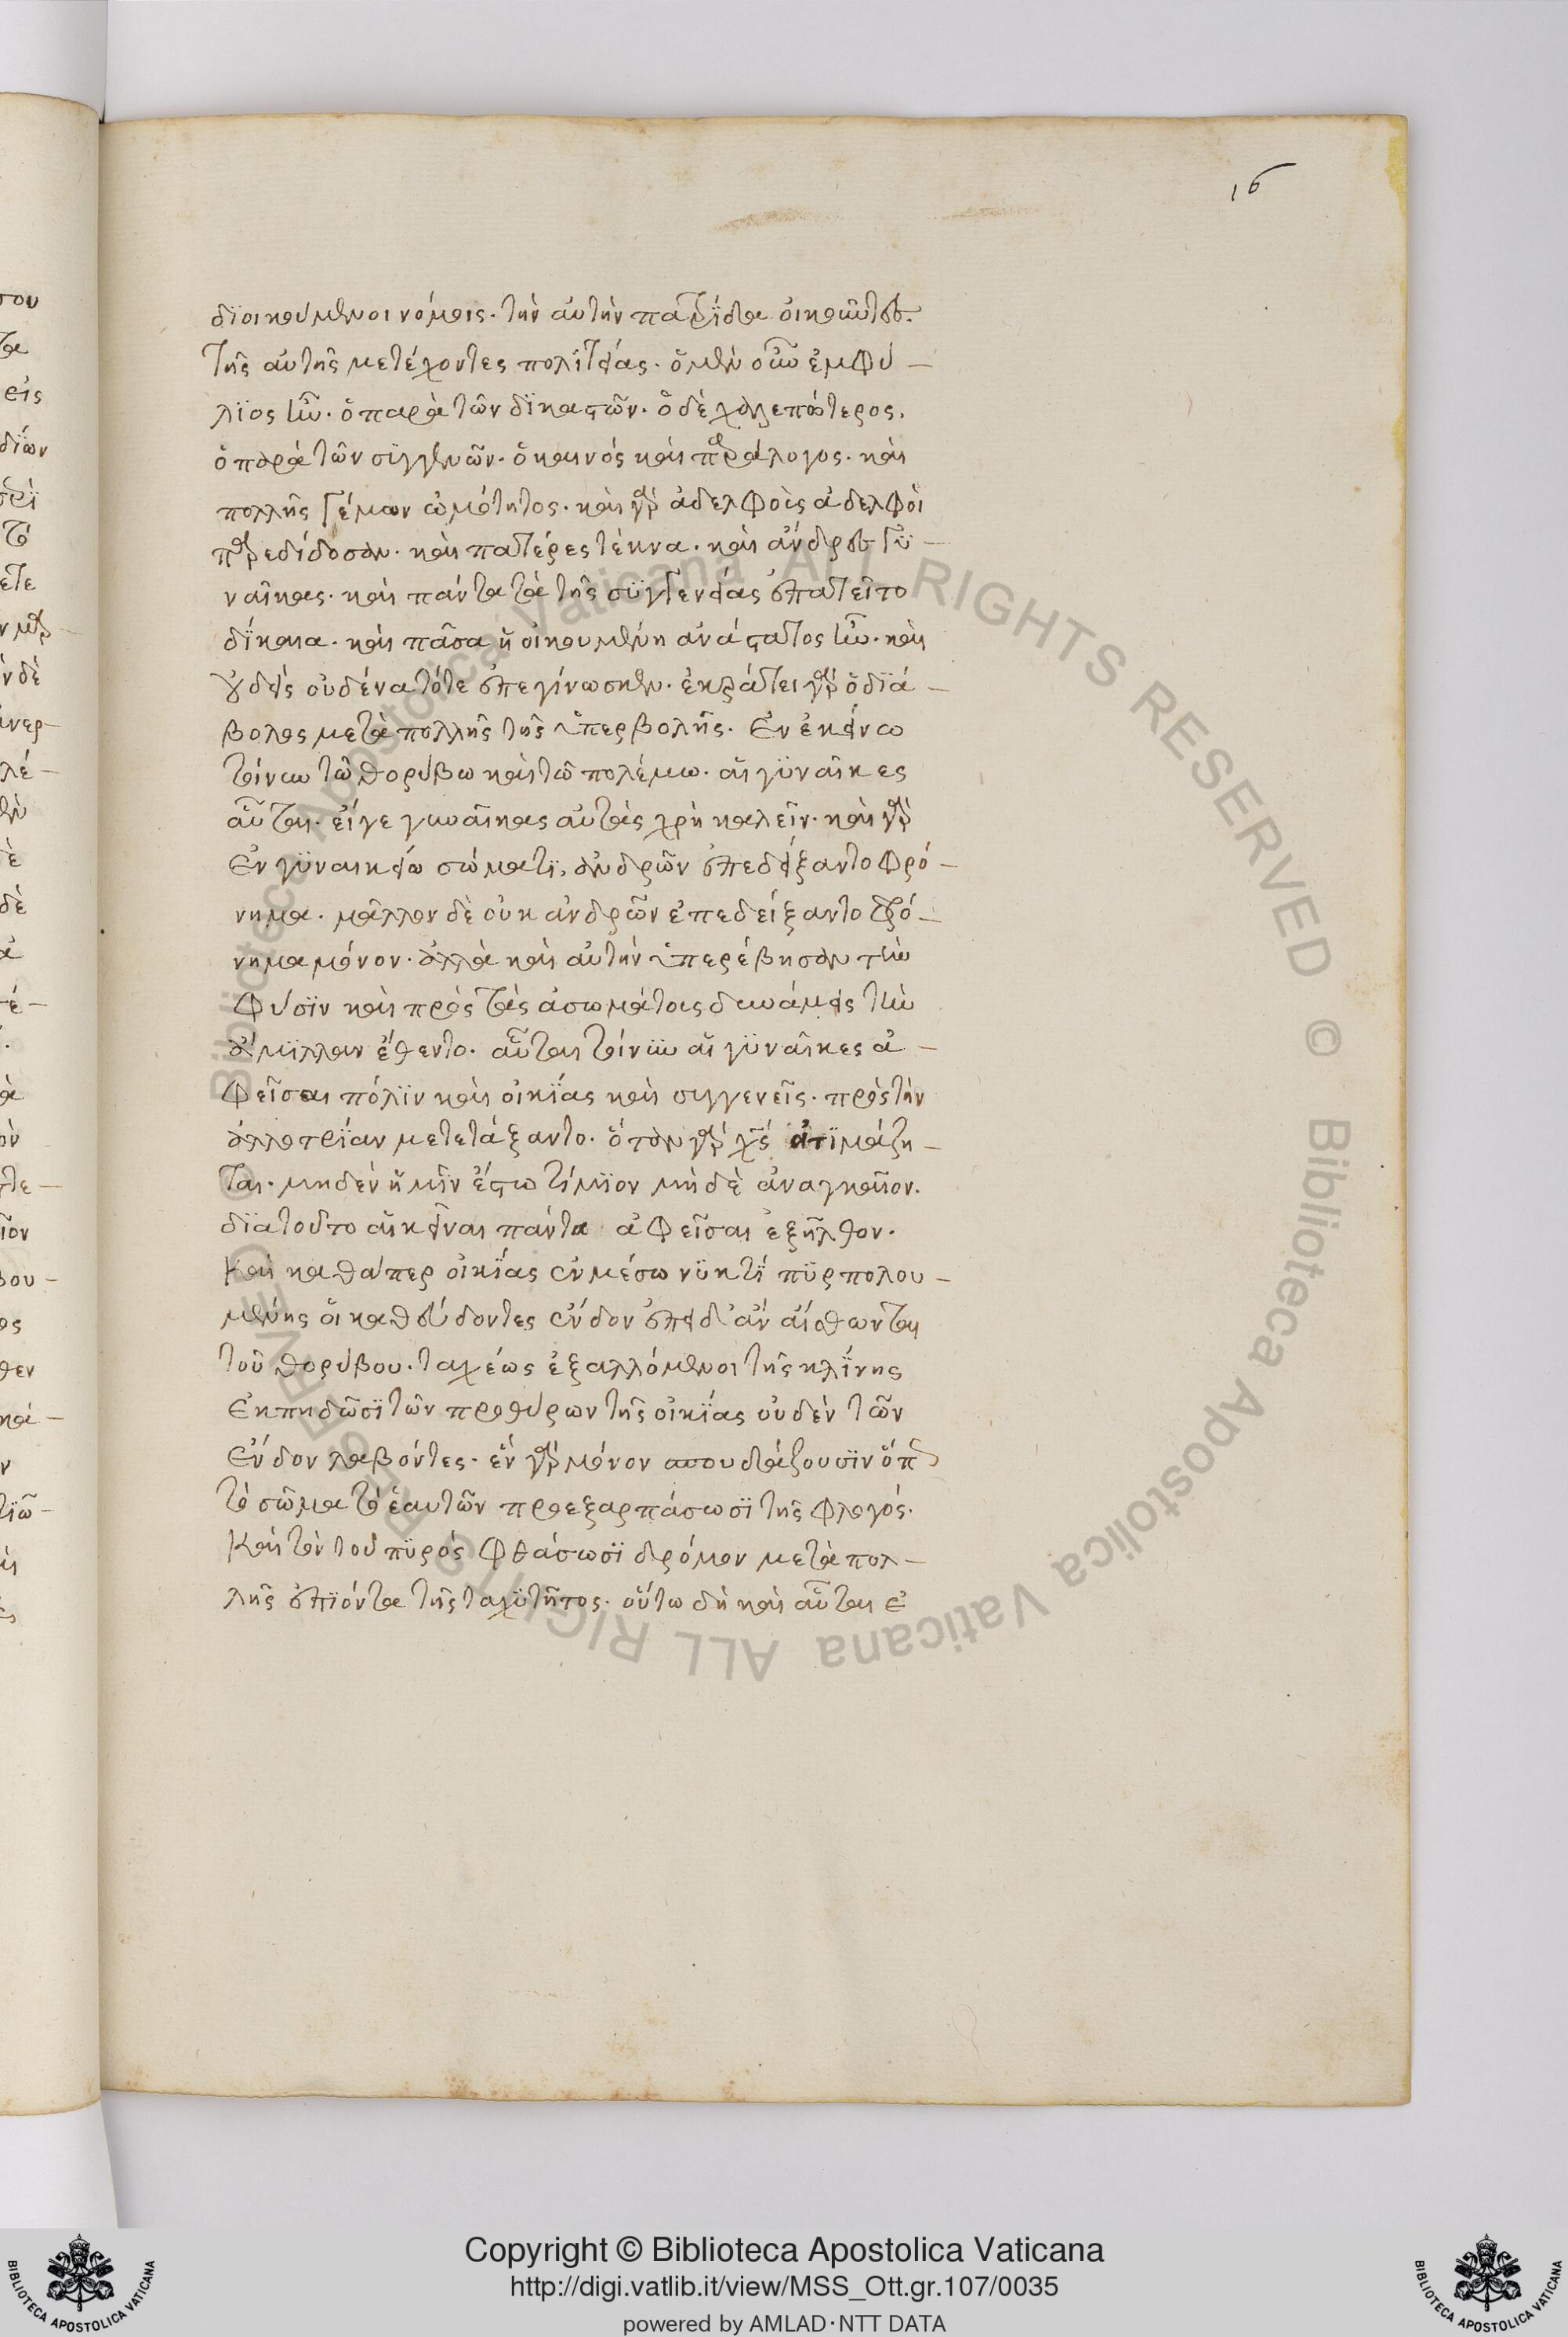 16
διοικούμενοι νόμοις. τὴν αὐτὴν πατρίδα οἰκοῦντες.
τῆς αὐτῆς μετέχοντες πολιτείας. ὁ μὲν οὖν ἐμφύ-
λιος ἦν. ὁ παρὰ τῶν δικαστῶν. ὁ δὲ χαλεπώτερος.
ὁ παρὰ τῶν συγγενῶν. ὁ καινὸς καὶ παράλογος. καὶ
πολλῆς γέμων ὠμότητος. καὶ γὰρ ἀδελφοὺς ἀδελφοὶ
παρεδίδοσαν. καὶ πατέρες τέκνα. καὶ ἄνδρες γϋ-
ναῖκας. καὶ πάντα τὰ τῆς συγγενείας ἐπατεῖτο
δίκαια. καὶ πᾶσα ἡ οἰκουμένη ἀνάστατος ἦν. καὶ
οὐδεὶς οὐδένα τότε ἐπεγίνωσκεν. ἐκράτει γὰρ ὁ διά-
βολος μετὰ πολλῆς τῆς ὑπερβολῆς. ἐν ἐκείνω
τοίνυν τῶ θορύβω καὶ τῶ πολέμω. αἱ γϋναῖκες
αὗται. εἴγε γυναῖκας αὐτὰς χρὴ καλεῖν. καὶ γὰρ
ἐν γϋναικείω σώματι, ἀνδρῶν ἐπεδείξαντο φρό-
νημα. μᾶλλον δὲ οὐκ ἀνδρῶν ἐπεδείξαντο φρό-
νημα μόνον. ἀλλὰ καὶ αὐτὴν ὑπερέβησαν τὴν
φύσιν καὶ πρὸς τὰς ἀσωμάτους δυνάμεις τὴν
ἅμιλλαν ἔθεντο. αὗται τοίνυν αἱ γϋναῖκες ἀ-
φεῖσαι πόλιν καὶ οἰκίας καὶ συγγενεῖς. πρὸς τὴν
ἀλλοτρίαν μετετάξαντο. ὅταν γὰρ χς ἀτιμάζη-
ται. μηδὲν ἡμῖν ἔστω τίμιον μὴ δὲ ἀναγκαῖον.
διατοῦτο αἱ κεῖναι πάντα ἀφεῖσαι ἐξῆλθον.
Καὶ καθάπερ οἰκίας ἐν μέσω νϋκτὶ πϋρπολου-
μένης οἱ καθεύδοντες ἔνδον ἐπειδ᾽ ἂν αἴσθωνται
τοῦ θορύβου. ταχέως ἐξαλλόμενοι τῆς κλίνης
ἐκπηδῶσι τῶν προθύρων τῆς οἰκίας οὐδὲν τῶν
ἔνδον λαβόντες. ἓν γὰρ μόνον σπουδάζουσιν ὅπως
τὸ σῶμα τὸ ἑαυτῶν προεξαρπάσωσι τῆς φλογός.
Καὶ τὸν τοῦ πϋρὸς φθάσωσι δρόμον μετὰ πολ-
λῆς ἐπιόντα τῆς ταχϋτῆτος. οὕτω δὴ καὶ αὗται ἐ
Copyright © Biblioteca Apostolica Vaticana
http://digi.vatlib.it/view/MSS_Ott.gr.107/0035
powered by AMLAD·NTT DATA